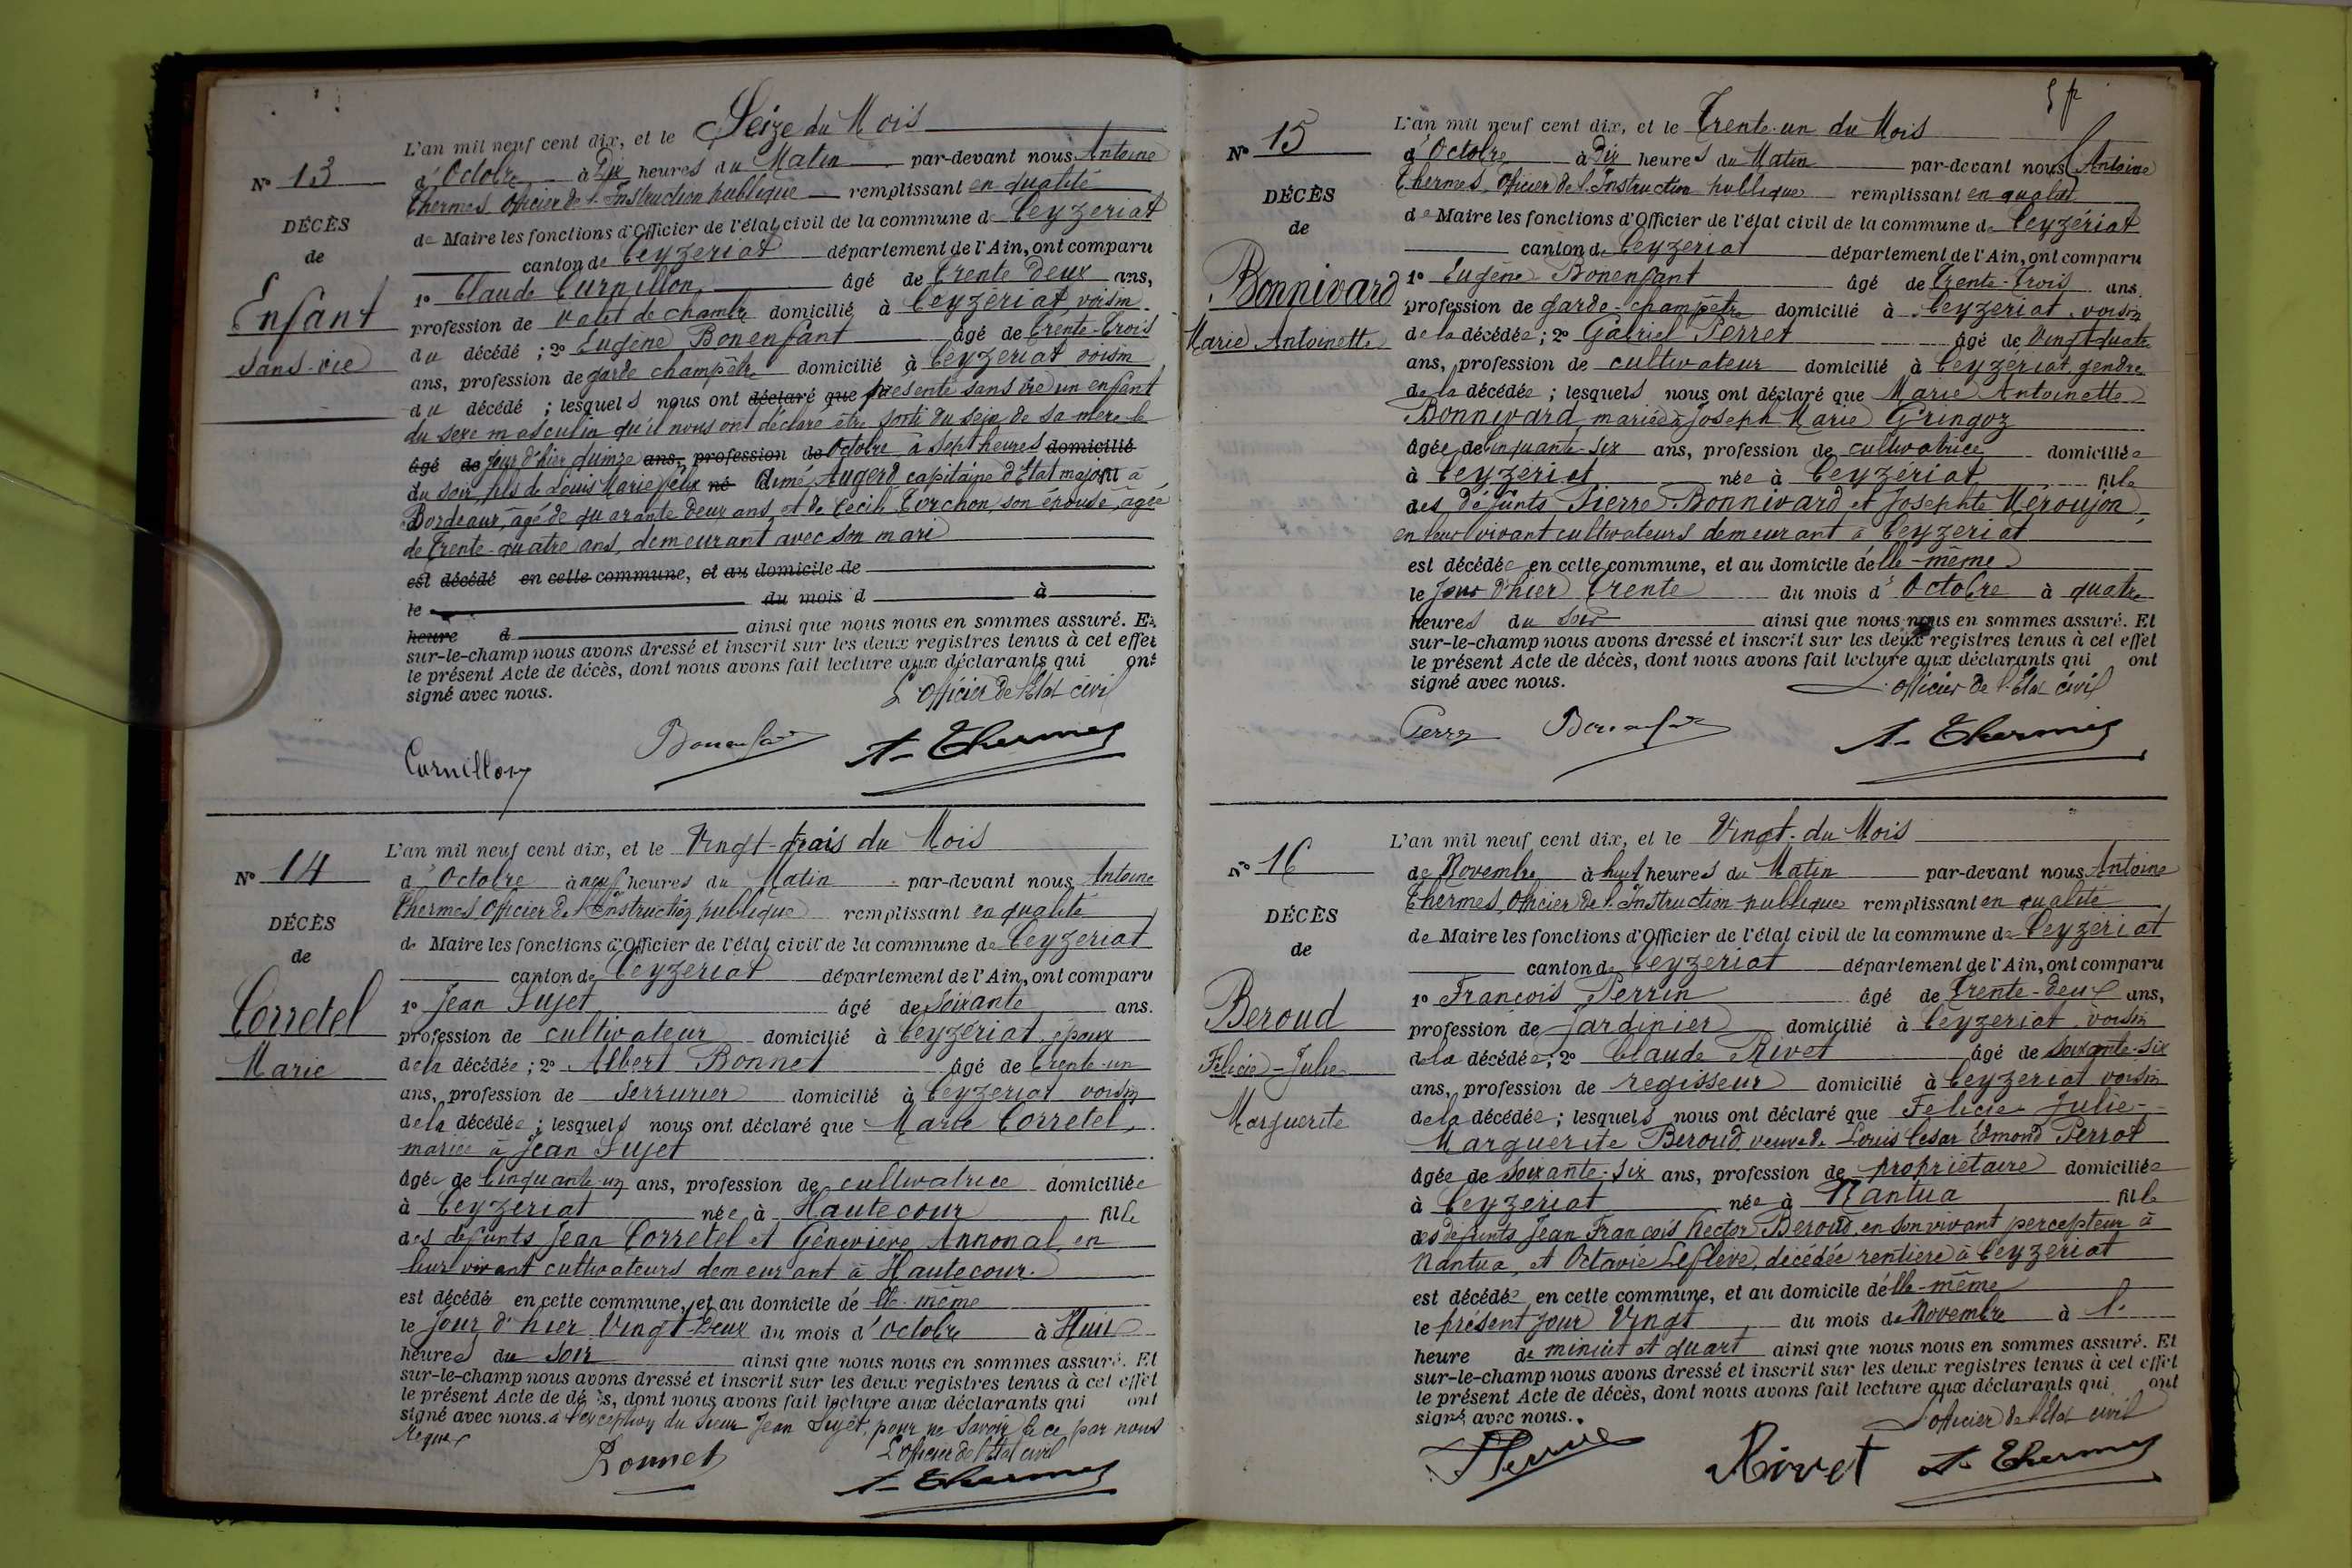 Nº 13
DÉCÈS
de
Enfant
sans vie
L'an mil neuf cent dix, et le Seize du Mois
d'Octobre à Dix heures du Matin par-devant nous Antoine
Thermes Officier de l'Instruction publique remplissant en qualité
de Maire les fonctions d'Officier de l'état civil de la commune de Ceyzeriat
canton de Ceyzeriat département de l'Ain, ont comparu
1º Claude Curnillon âgé de trente deux ans,
profession de valet de chambre domicilié à Ceyzériat, voisin
du décédé ; 2º Eugène Bonenfant âgé de trente-trois
ans, profession de garde champêtre domicilié à Ceyzeriat voisin
du décédé ; lesquels nous ont déclaré que presenté sans vie un enfant
du sexe masculin qu'il nous ont déclaré être sorti du sein de sa mère le
âgé de jour d'hier quinze ans, profession de Octobre à sept heures domicilié
du soir, fils de Louis Marie Félix né Aimé Augerd capitaine d'Etat major à
Bordeaux, âgé de quarante deux ans et de Cécile Torchon, son épouse, âgée
de trente-quatre ans, demeurant avec son mari
est décédé en cette commune, et au domicile de
le du mois d à
heure d ainsi que nous nous en sommes assuré. Et
sur-le-champ nous avons dressé et inscrit sur les deux registres tenus à cet effet
le présent Acte de décès, dont nous avons fait lecture aux déclarants qui ont
signé avec nous. L'officier de l'Etat civil
Curnillon Bonenfant A. Thermes
Nº 14
DÉCÈS
de
Corretel
Marie
L'an mil neuf cent dix, et le Vingt-trois du Mois
d'Octobre à neuf heures du Matin par-devant nous Antoine
Thermes Officier de l'Instruction publique remplissant en qualité
de Maire les fonctions d'Officier de l'état civil de la commune de Ceyzeriat
canton de Ceyzériat département de l'Ain, ont comparu
1º Jean Sujet âgé de Soixante ans.
profession de cultivateur domicilié à Ceyzériat, époux
de la décédée ; 2º Albert Bonnet âgé de trente-un
ans, profession de Serrurier domicilié à Ceyzeriat voisin
de la décédée ; lesquels nous ont déclaré que Marie Corretel,
mariée à Jean Sujet
âgée de Cinquante-un ans, profession de cultivatrice domiciliée
à Ceyzeriat née à Hautecour fille
des défunts Jean Corretel et Geneviève Annonal, en
leur vivant cultivateurs demeurant à Hautecour.
est décédé en cette commune, et au domicile d'elle-même
le jour d'hier Vingt-Deux du mois d'octobre à Huit
heures du soir ainsi que nous nous en sommes assuré. Et
sur-le-champ nous avons dressé et inscrit sur les deux registres tenus à cet effet
le présent Acte de décès, dont nous avons fait lecture aux déclarants qui ont
signé avec nous. à l'exception du Sieur Jean Sujet, pour ne savoir à ce par nous
requis L'Officier de l'Etat civil
Bonnet A. Thermes
Nº 15
DÉCÈS
de
Bonnivard
Marie Antoinette
L'an mil neuf cent dix, et le Trente-un du Mois
d'Octobre à Dix heures du Matin par-devant nous Antoine
Thermes, Officier de l'Instruction publique remplissant en qualité
de Maire les fonctions d'Officier de l'état civil de la commune de Ceyzériat
canton de Ceyzeriat département de l'Ain, ont comparu
1º Eugène Bonenfant âgé de Trente-Trois ans
profession de garde-champêtre domicilié à Ceyzeriat, voisin
de la décédée ; 2º Gabriel Perret âgé de Vingt quatre
ans, profession de cultivateur domicilié à Ceyzériat, gendre
de la décédée ; lesquels nous ont déclaré que Marie Antoinette
Bonnivard, mariée à Joseph Marie Gringoz
âgée de Cinquante-six ans, profession de cultivatrice domiciliée
à Ceyzeriat née à Ceyzériat fille
des défunts Pierre Bonnivard et Josephte Meroujon
en leur vivant cultivateurs demeurant à Ceyzeriat
est décédée en cette commune, et au domicile d'elle-même
le jour d'hier trente du mois d'Octobre à quatre
heures du soir ainsi que nous nous en sommes assuré. Et
sur-le-champ nous avons dressé et inscrit sur les deux registres tenus à cet effet
le présent Acte de décès, dont nous avons fait lecture aux déclarants qui ont
signé avec nous. L'officier de l'Etat civil
Perret Bonenfant A. Thermes
Nº 16
DÉCÈS
de
Beroud
Felicie-Julie
Marguerite
L'an mil neuf cent dix, et le Vingt du Mois
de Novembre à huit heures du Matin par-devant nous Antoine
Thermes, Officier de l'Instruction publique remplissant en qualité
de Maire les fonctions d'Officier de l'état civil de la commune de Ceyzériat
canton de Ceyzeriat département de l'Ain, ont comparu
1º François Perrin âgé de Trente-deux ans,
profession de Jardinier domicilié à Ceyzeriat, voisin
de la décédée ; 2º Claude Rivet âgé de soixante-six
ans, profession de regisseur domicilié à Ceyzeriat voisin
de la décédée ; lesquels nous ont déclaré que Felicie Julie-
Marguerite Beroud, veuve de Louis Cesar Edmond Perrot
âgée de soixante-six ans, profession de propriétaire domiciliée
à Ceyzeriat née à Nantua fille
des défunts Jean François Hector Beroud, en son vivant percepteur à
Nantua, et Octavie Leflève, décédée rentière à Ceyzeriat
est décédée en cette commune, et au domicile d'elle-même
le présent jour Vingt du mois de Novembre à l'
heure de minuit et quart ainsi que nous nous en sommes assuré. Et
sur-le-champ nous avons dressé et inscrit sur les deux registres tenus à cet effet
le présent Acte de décès, dont nous avons fait lecture aux déclarants qui ont
signé avec nous. L'officier de l'Etat civil
Rivet A. Thermes